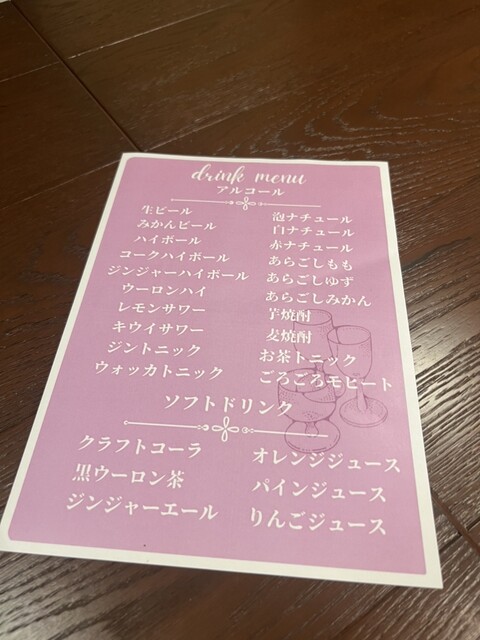 drink menu
アルコール
生ビール
みかんビール
ハイボール
コークハイボール
ジンジャーハイボール
ウーロンハイ
レモンサワー
キウイサワー
ジントニック
ウォッカトニック
泡ナチュール
白ナチュール
赤ナチュール
あらごしもも
あらごしゆず
あらごしみかん
芋焼酎
麦焼酎
お茶トニック
ごろごろモヒート
ソフトドリンク
クラフトコーラ
黒ウーロン茶
ジンジャーエール
オレンジジュース
パインジュース
りんごジュース